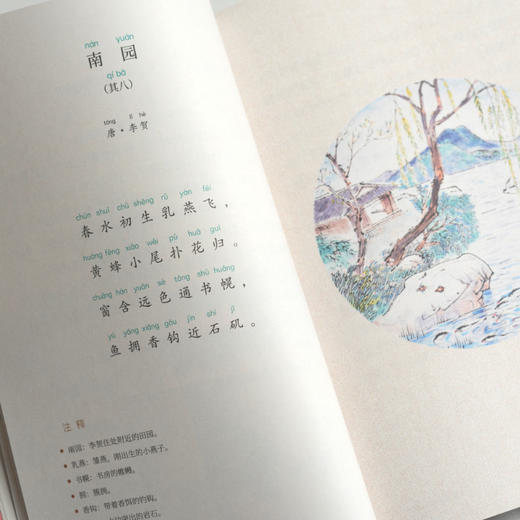 nán yuán
南园
qí bā
（其八）
táng lǐ hè
唐·李贺
chūn shuǐ chū shēng rǔ yàn fēi
春水初生乳燕飞，
huáng fēng xiǎo wěi pū huā guī
黄蜂小尾扑花归。
chuāng hán yuǎn sè tōng shū huǎng
窗含远色通书幌，
yú yōng xiāng gōu jìn shí jī
鱼拥香钩近石矶。
注释
南园：李贺住处附近的田园。
乳燕：雏燕，刚出生的小燕子。
书幌：书房的帷幔。
拥：簇拥。
香钩：带着香饵的钓钩。
突出的岩石。